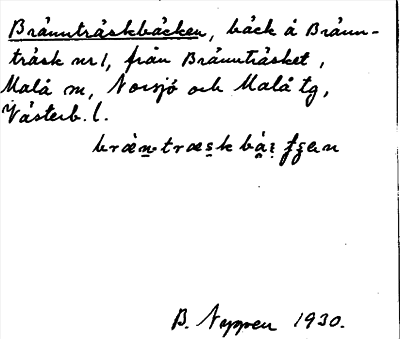 Brännträskbäcken, bäck å Bränn-
träsk nr 1, från Brännträsket,
Malå m, Norsjö och Malå tg,
Västerb. l.
B. Nyppen 1930.